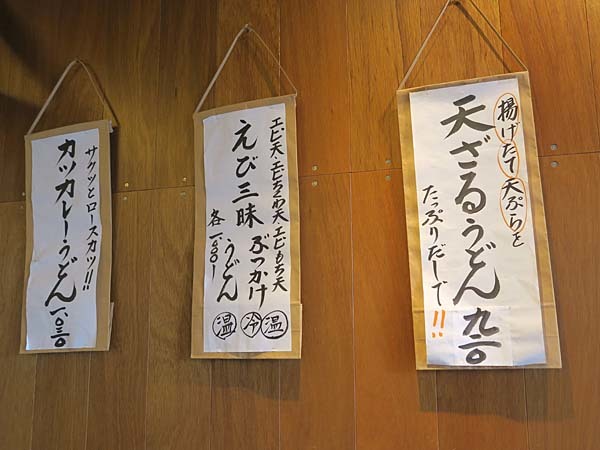 揚げたて天ぷらを
天ざるうどん
たっぷりだしで!!
エビ天・エビちくわ天・エビもち天
えび三昧ぶっかけ
うどん
各一、〇〇〇ー
温 冷 温
サクッとロースカツ!!
カツカレーうどん 一、〇三〇